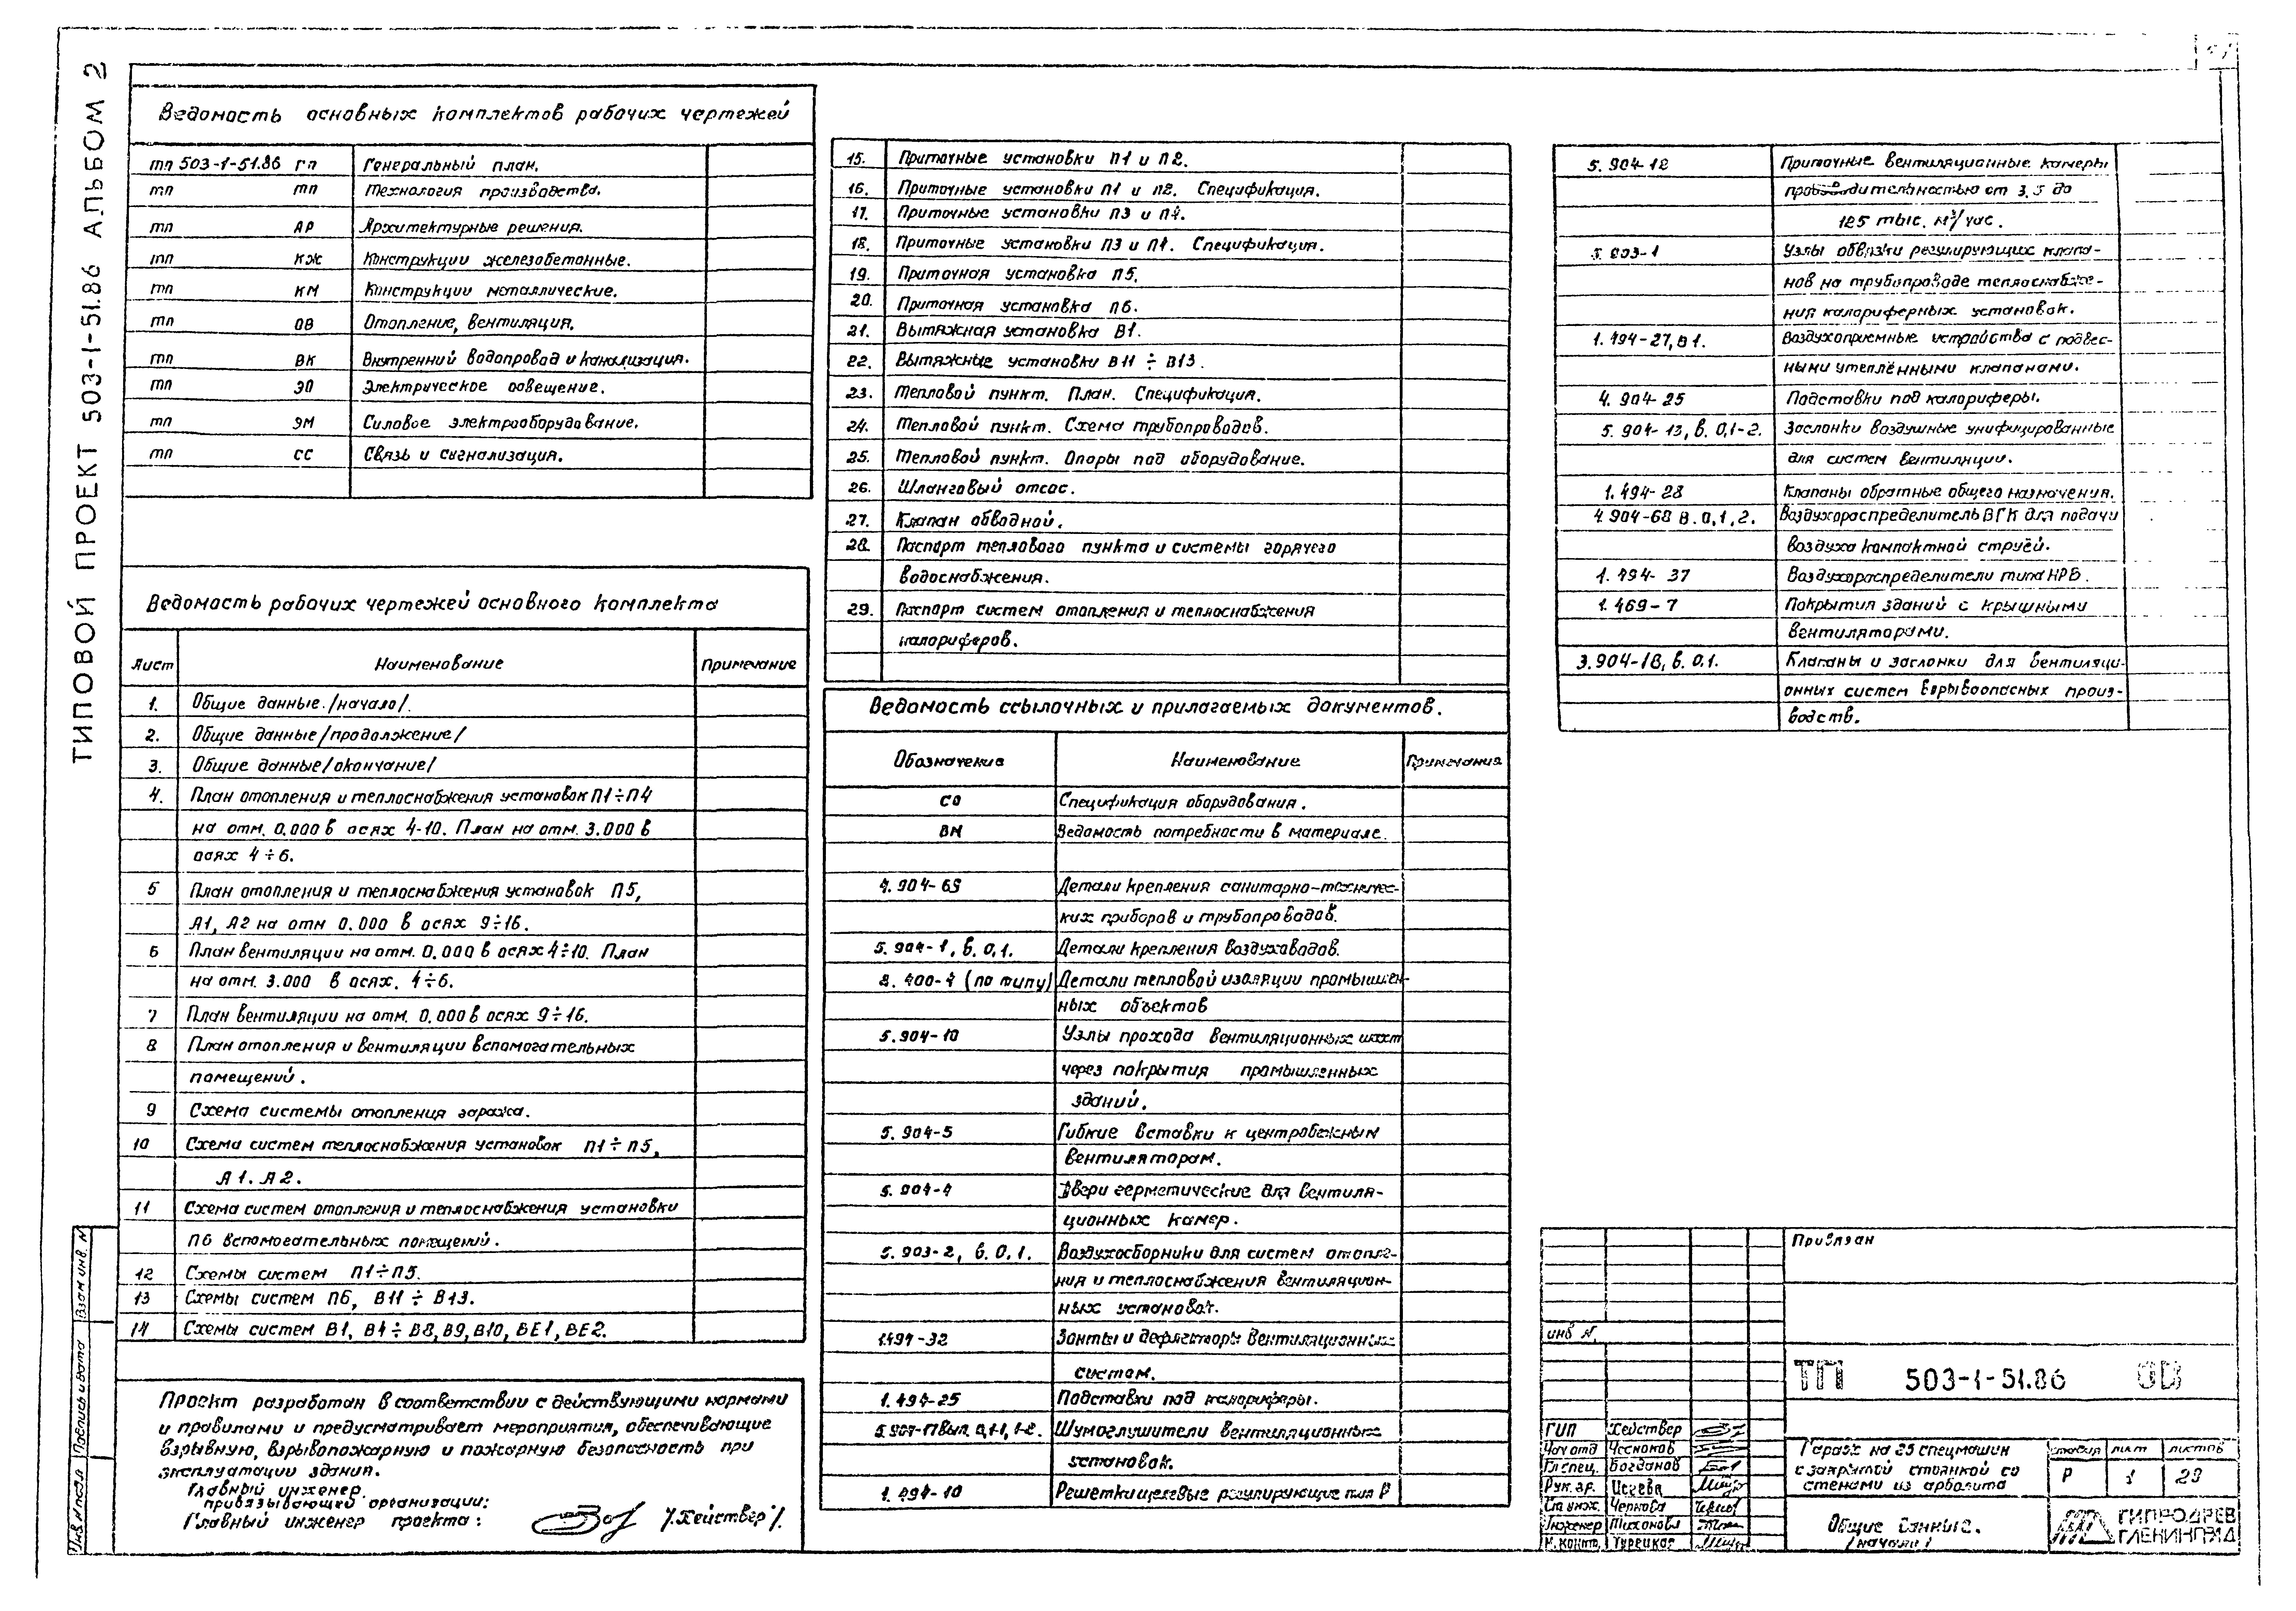 ТИПОВОЙ ПРОЕКТ 503-1-51.86 АЛЬБОМ 2
Ведомость основных комплектов рабочих чертежей
тп 503-1-51.86 ГП Генеральный план.
тп тп Технология производства.
тп АР Архитектурные решения.
тп КЖ Конструкции железобетонные.
тп КМ Конструкции металлические.
тп ОВ Отопление, вентиляция.
тп ВК Внутренний водопровод и канализация.
тп ЭО Электрическое освещение.
тп ЭМ Силовое электрооборудование.
тп СС Связь и сигнализация.
Ведомость рабочих чертежей основного комплекта
Лист Наименование Примечание
1. Общие данные /начало/.
2. Общие данные /продолжение/
3. Общие данные /окончание/
4. План отопления и теплоснабжения установок П1÷П4
на отм. 0.000 в осях 4-10. План на отм. 3.000 в
осях 4÷6.
5 План отопления и теплоснабжения установок П5,
А1, А2 на отм 0.000 в осях 9÷16.
6 План вентиляции на отм. 0.000 в осях 4÷10. План
на отм. 3.000 в осях. 4÷6.
7 План вентиляции на отм. 0.000 в осях 9÷16.
8 План отопления и вентиляции вспомогательных
помещений.
9 Схема системы отопления гаража.
10 Схема систем теплоснабжения установок П1÷П5,
А1. А2.
11 Схема систем отопления и теплоснабжения установки
П6 вспомогательных помещений.
12 Схемы систем П1÷П5.
13 Схемы систем П6, В11÷В13.
14 Схемы систем В1, В4÷В8, В9, В10, ВЕ1, ВЕ2.
Проект разработан в соответствии с действующими нормами
и правилами и предусматривает мероприятия, обеспечивающие
взрывную, взрывопожарную и пожарную безопасность при
эксплуатации здания.
Главный инженер
привязывающей организации:
Главный инженер проекта: /Хействер/.
15. Приточные установки П1 и П2.
16. Приточные установки П1 и П2. Спецификация.
17. Приточные установки П3 и П4.
18. Приточные установки П3 и П4. Спецификация.
19. Приточная установка П5.
20. Приточная установка П6.
21. Вытяжная установка В1.
22. Вытяжные установки В11÷В13.
23. Тепловой пункт. План. Спецификация.
24. Тепловой пункт. Схема трубопроводов.
25. Тепловой пункт. Опоры под оборудование.
26. Шланговый отсос.
27. Клапан обводной.
28. Паспорт теплового пункта и системы горячего
водоснабжения.
29. Паспорт систем отопления и теплоснабжения
калориферов.
Ведомость ссылочных и прилагаемых документов.
Обозначение Наименование Примечания
СО Спецификация оборудования.
ВМ Ведомость потребности в материале.
4.904-69 Детали крепления санитарно-техничес-
ких приборов и трубопроводов.
5.904-1, в. 0,1. Детали крепления воздуховодов.
2.400-4 (по типу) Детали тепловой изоляции промышлен-
ных объектов
5.904-10 Узлы прохода вентиляционных шахт
через покрытия промышленных
зданий.
5.904-5 Гибкие вставки к центробежным
вентиляторам.
5.904-4 Двери герметические для вентиля-
ционных камер.
5.903-2, в. 0,1. Воздухосборники для систем отопле-
ния и теплоснабжения вентиляцион-
ных установок.
1.494-32 Зонты и дефлекторы вентиляционных
систем.
1.494-25 Подставки под калориферы.
5.904-17 вып. 0,1-1, 1-2. Шумоглушители вентиляционных
установок.
1.494-10 Решетки щелевые регулирующие тип Р
5.904-12 Приточные вентиляционные камеры
производительностью от 3.5 до
125 тыс. м³/час.
5.903-1 Узлы обвязки регулирующих клапа-
нов на трубопроводе теплоснабже-
ния калориферных установок.
1.494-27, в 1. Воздухоприемные устройства с подвес-
ными утеплёнными клапанами.
4.904-25 Подставки под калориферы.
5.904-13, в. 0,1-2. Заслонки воздушные унифицированные
для систем вентиляции.
1.494-28 Клапаны обратные общего назначения.
4.904-68 в. 0,1,2. Воздухораспределитель ВГК для подачи
воздуха компактной струёй.
1.494-37 Воздухораспределители типа НРВ.
1.469-7 Покрытия зданий с крышными
вентиляторами.
3.904-18, в. 0,1. Клапаны и заслонки для вентиляци-
онных систем взрывоопасных произ-
водств.
Привязан
инв N.
ТП 503-1-51.86 ОВ
ГИП Хействер
Нач отд Чесноков
Гл спец. Богданов
Рук. гр. Исаева
Ст. инж. Чернова
Инженер Тихонова
Н. контр. Турецкая
Гараж на 25 спецмашин
с закрытой стоянкой со
стенами из арболита
стадия лист листов
Р 1 29
Общие данные.
/начало/
ГИПРОДРЕВ
ЛЕНИНГРАД
Взам инв. N
Подпись и дата
Инв N подл